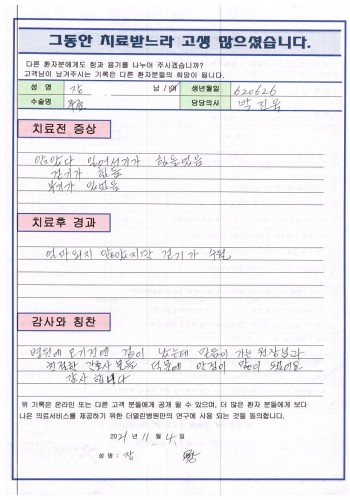 그동안 치료받느라 고생 많으셨습니다.
다른 환자분에게도 힘과 용기를 나누어 주시겠습니까?
고객님이 남겨주시는 기록은 다른 환자분들의 희망이 됩니다.
성 명 장 남 / 여 생년월일 620626
수술명 담당의사 박진욱
치료전 증상
앉았다 일어서기가 힘들었음
걷기가 힘듦
부기가 있었음
치료후 경과
얼마되지 않았지만 걷기가 수월
감사와 칭찬
병원에 오기전엔 겁이 났는데 믿음이 가는 원장님과
친절한 간호사분들 덕분에 안정이 많이 됐어요
감사합니다
위 기록은 온라인 또는 다른 고객 분들에게 공개 될 수 있으며, 더 많은 환자 분들에게 보다
나은 의료서비스를 제공하기 위한 더열린병원만의 연구에 사용 되는 것을 동의합니다.
2021 년 11 월 4 일
성 명 : 장